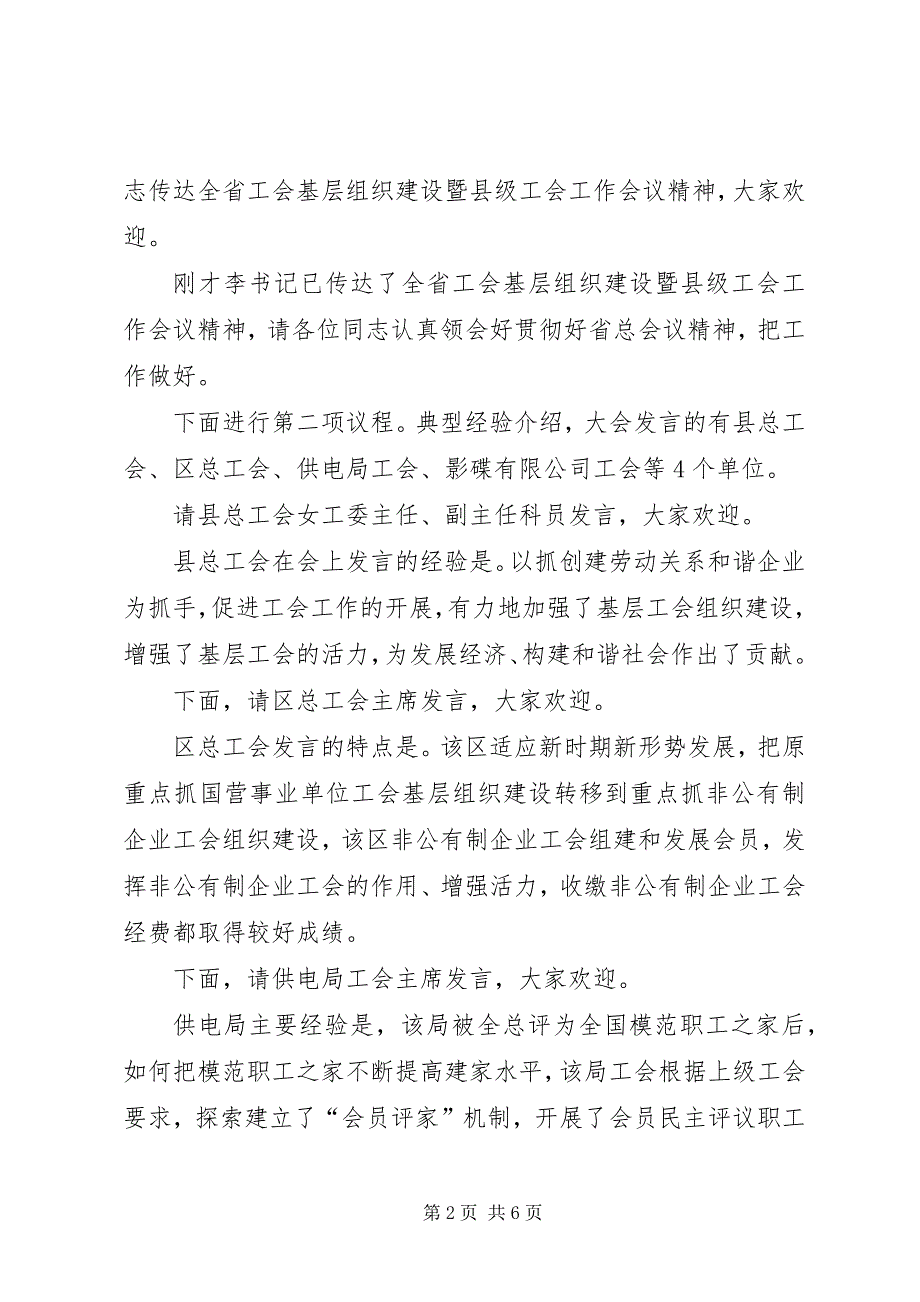 志传达全省工会基层组织建设暨县级工会工作会议精神，大家欢
迎。
刚才李书记已传达了全省工会基层组织建设暨县级工会工
作会议精神，请各位同志认真领会好贯彻好省总会议精神，把工
作做好。
下面进行第二项议程。典型经验介绍，大会发言的有县总工
会、区总工会、供电局工会、影碟有限公司工会等 4 个单位。
请县总工会女工委主任、副主任科员发言，大家欢迎。
县总工会在会上发言的经验是。以抓创建劳动关系和谐企业
为抓手，促进工会工作的开展，有力地加强了基层工会组织建设，
增强了基层工会的活力，为发展经济、构建和谐社会作出了贡献。
下面，请区总工会主席发言，大家欢迎。
区总工会发言的特点是。该区适应新时期新形势发展，把原
重点抓国营事业单位工会基层组织建设转移到重点抓非公有制
企业工会组织建设，该区非公有制企业工会组建和发展会员，发
挥非公有制企业工会的作用、增强活力，收缴非公有制企业工会
经费都取得较好成绩。
下面，请供电局工会主席发言，大家欢迎。
供电局主要经验是，该局被全总评为全国模范职工之家后，
如何把模范职工之家不断提高建家水平，该局工会根据上级工会
要求，探索建立了“会员评家”机制，开展了会员民主评议职工
第 2 页 共 6 页